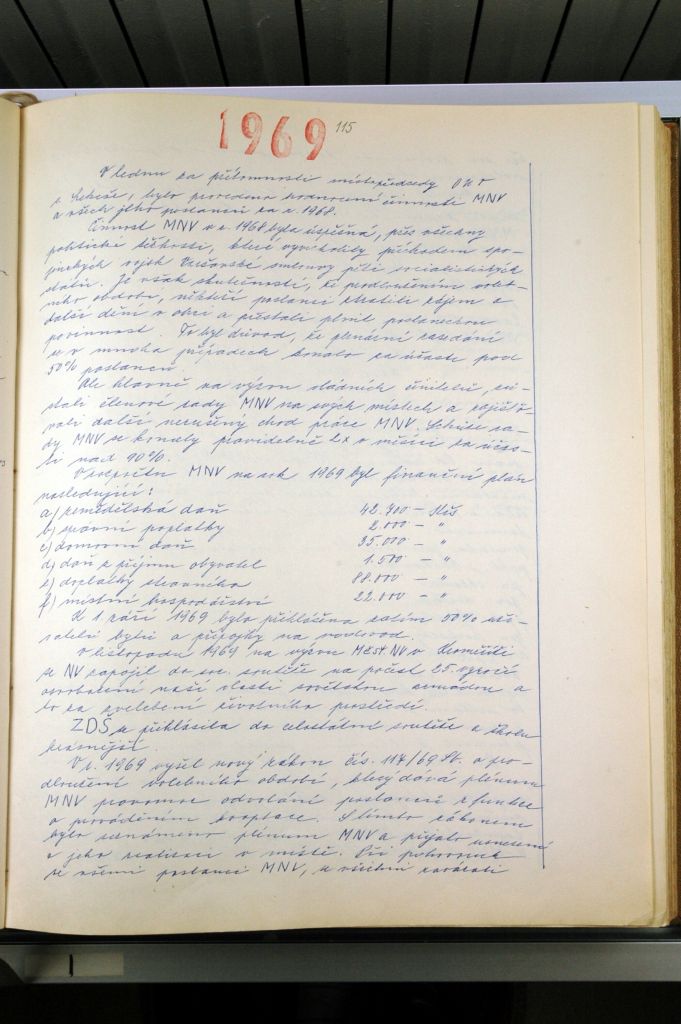 1969 115
V lednu za přítomnosti místopředsedy ONV
s. Lebiše, bylo provedeno hodnocení činnosti MNV
a všech jeho poslanců za r. 1968.
Činnost MNV v r. 1968 byla úspěšná, přes všechny
politické těžkosti, které vyvrcholily příchodem spo-
jeneckých vojsk Varšavské smlouvy pěti socialistických
států. Je však skutečností, že prodloužením voleb-
ního období, někteří poslanci ztratili zájem o
další dění v obci a přestali plnit poslaneckou
povinnost. To byl důvod, že plenární zasedání
se v mnoha případech konalo za účasti pod
50% poslanců.
Ale hlavně na výzvu vládních činitelů, zů-
stali členové rady MNV na svých místech a zajišťo-
vali další nerušený chod práce MNV. Schůze ra-
dy MNV se konaly pravidelně 2x v měsíci za účas-
ti nad 90%.
V rozpočtu MNV na rok 1969 byl finanční plán
následující:
a) zemědělská daň 42.400 - Kčs
b) správní poplatky 2.000 - "
c) domovní daň 35.000 - "
d) daň z příjmu obyvatel 1.500 - "
e) doplatky stravného 88.000 - "
f) místní hospodářství 22.000 - "
K 1 září 1969 bylo přihlášeno zatím 50% uži-
vatelů bytů a přípojky na vodovod.
V listopadu 1969 na výzvu MěstNV v
se NV zapojil do soc. soutěže na počest 25. výročí
osvobození naší vlasti sovětskou armádou a
to za zvelebení životního prostředí.
ZDŠ se přihlásila do celostátní soutěže o školu
krásnější.
V r. 1969 vyšel nový zákon čís. 117/69 Sb. o pro-
dloužení volebního období, který dává plénum
MNV pravomoc odvolání poslanců z funkce
a prováděním kooptace. S tímto zákonem
bylo seznámeno plénum MNV a přijalo usnesení
o jeho realisaci v místě. Při pohovorech
se všemi poslanci MNV, se všichni zavázali